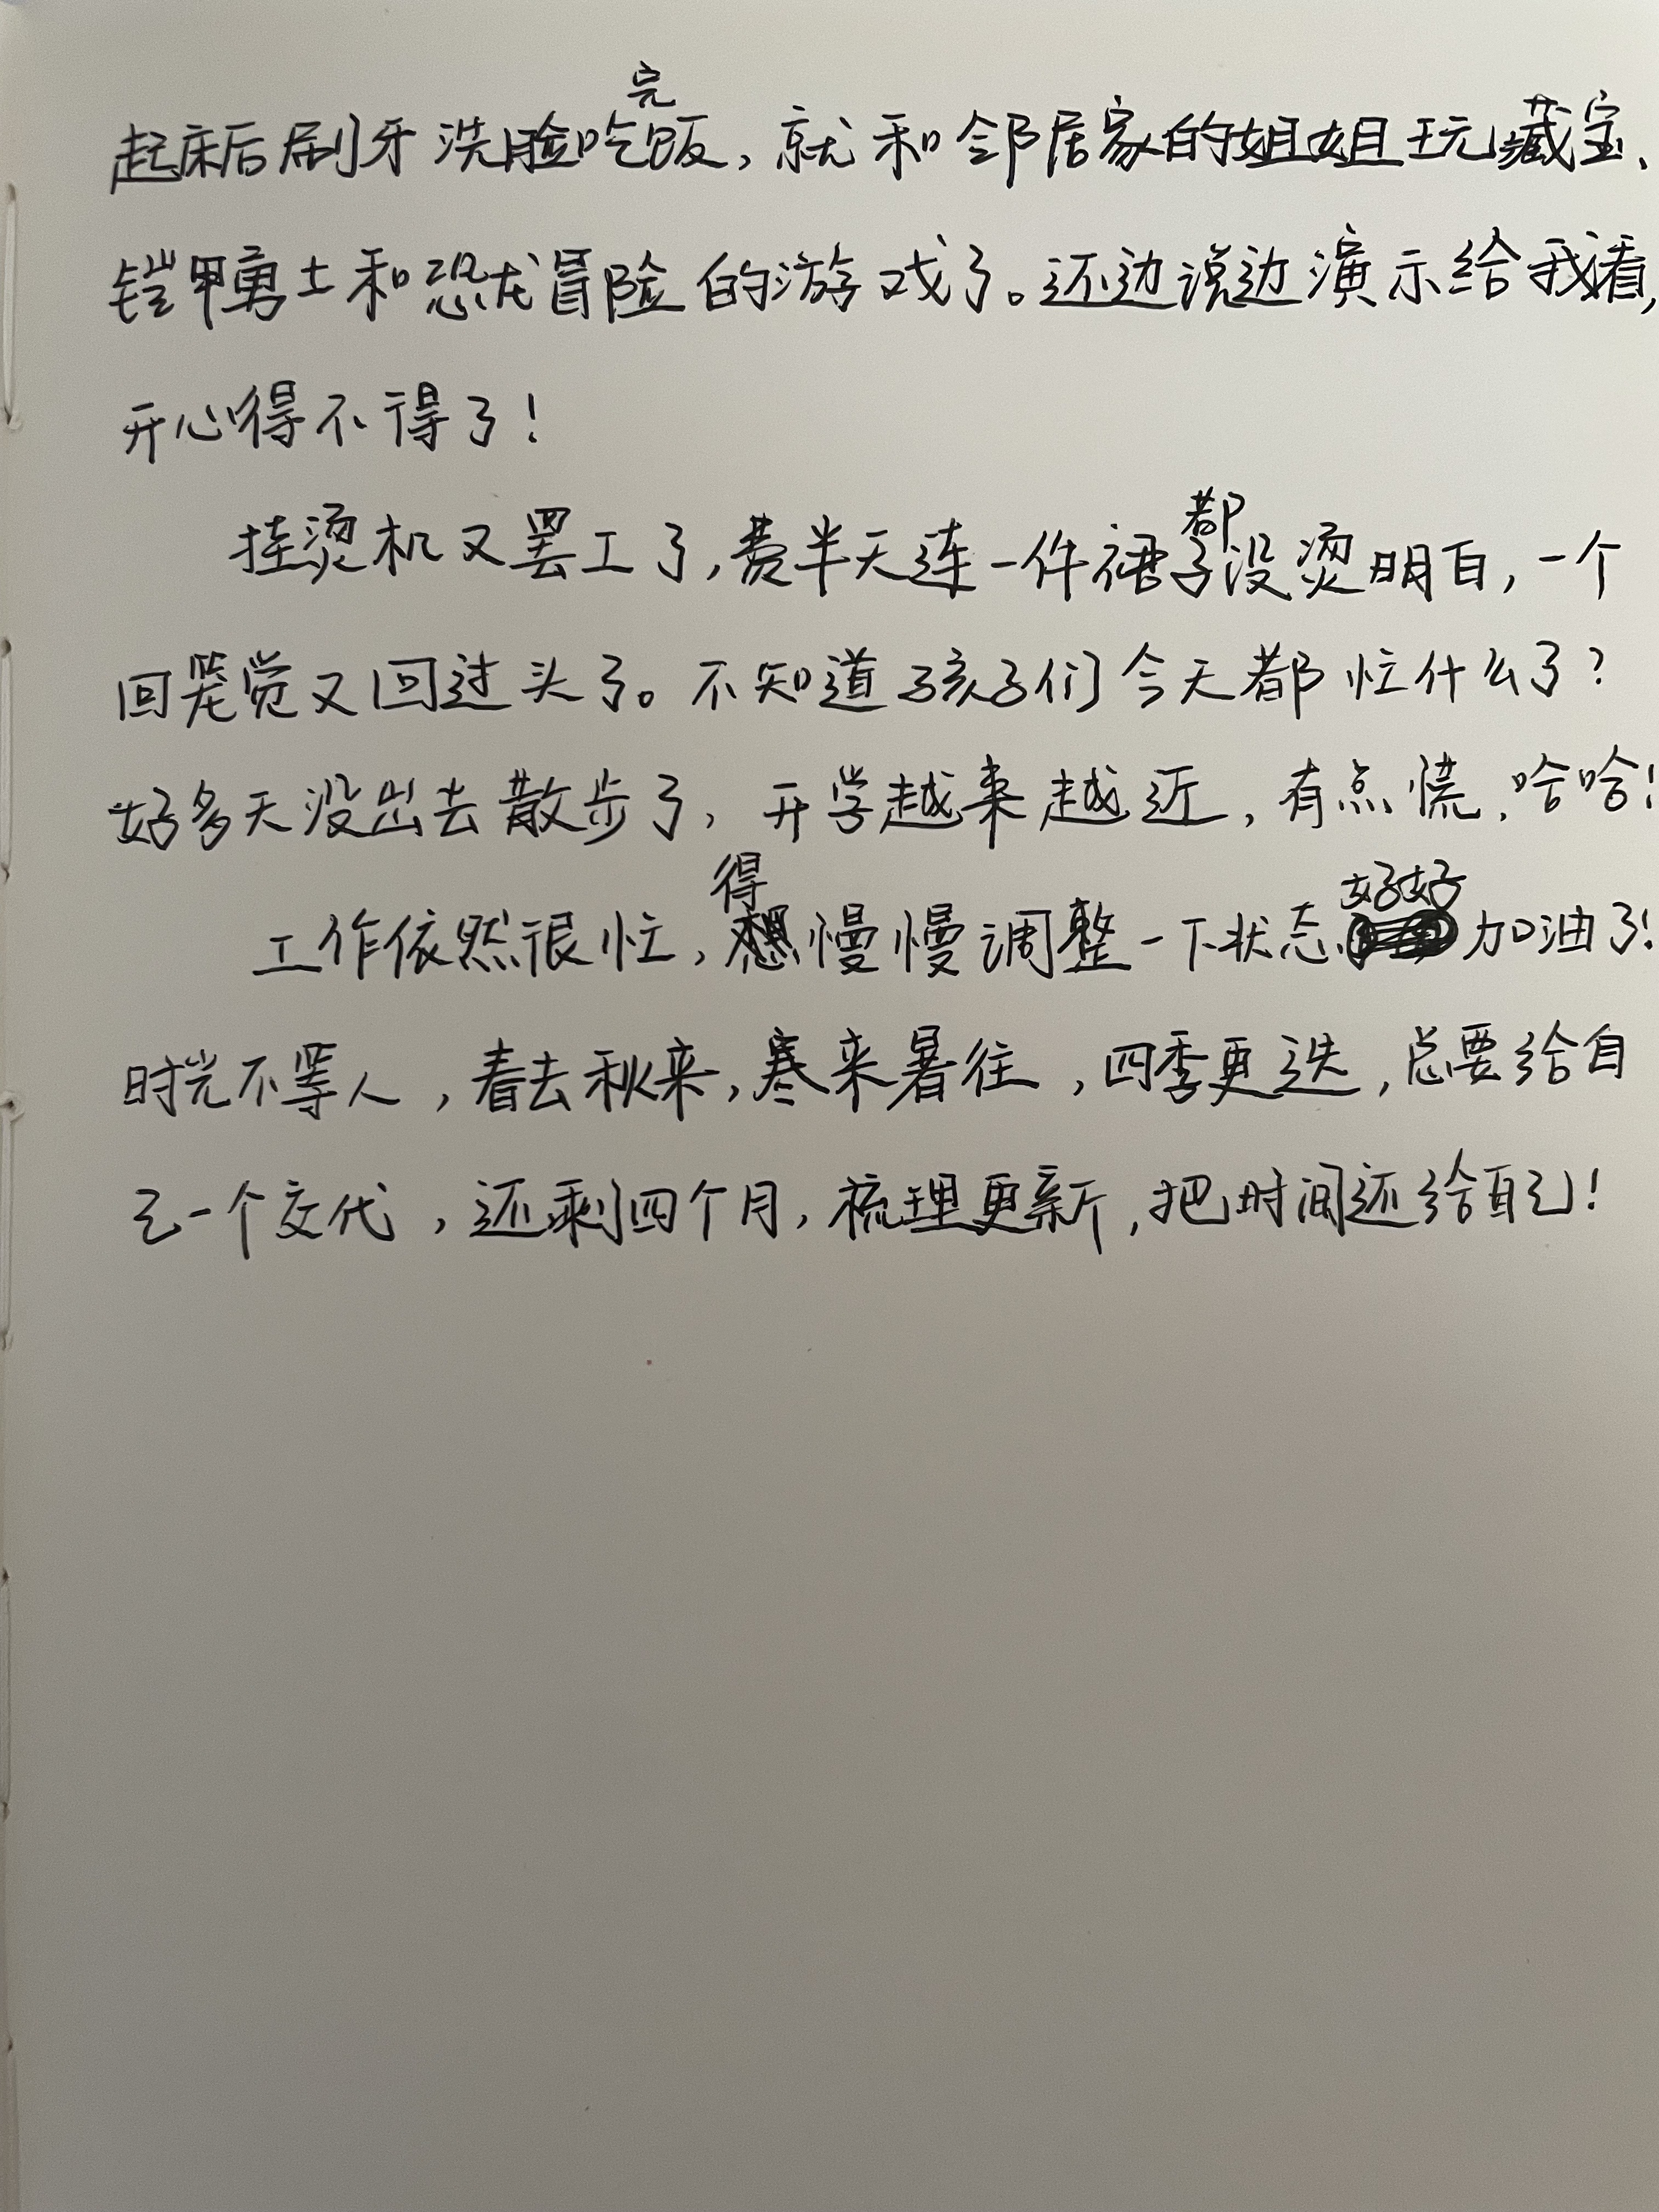 起床后刷牙洗脸吃完饭，就和邻居家的姐姐玩藏宝、
铠甲勇士和恐龙冒险的游戏了。还边说边演示给我看，
开心得不得了！
挂烫机又罢工了，费半天连一件裙子都没烫明白，一个
回笼觉又回过头了。不知道孩子们今天都忙什么了？
好多天没出去散步了，开学越来越近，有点慌，哈哈！
工作依然很忙，得慢慢调整一下状态好好加油了！
时光不等人，春去秋来，寒来暑往，四季更迭，总要给自
己一个交代，还剩四个月，梳理更新，把时间还给自己！